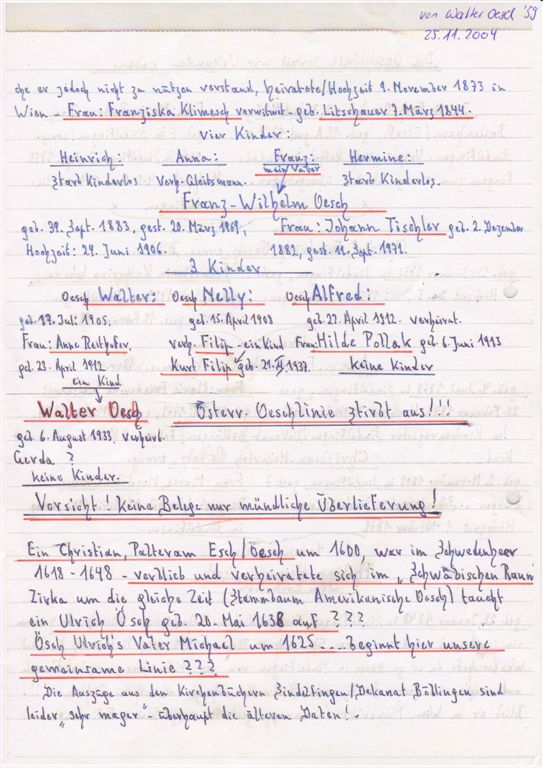 von Walter Oesch '59
25.11.2004
che er jedoch nicht zu nützen verstand, heiratete/Hochzeit 9. November 1873 in
Wien - Frau: Franziska Klimesch verwitwe - geb. Litschauer 7. März 1844.
vier Kinder:
Heinrich: Anna: Franz: Hermine:
starb Kinderlos verh. Gleitsmann. mein Vater starb Kinderlos.
Franz-Wilhelm Oesch
geb. Sept. 1883, gest. 20. März 1961, Frau: Johann Tischler geb. 2. Dezember
Hochzeit: 24. Juni 1906. 1882, gest. 11. Sept. 1971.
3 Kinder
Oesch Walter: Oesch Nelly: Oesch Alfred:
geb. Juli 1905, geb. 15. April 1908 geb. 22. April 1912. verheirat.
Frau: Anne Reithofer, verh. Filip - ein Kind Frau: Hilde Pollak geb. 6. Juni 1913
geb. 23. April 1912 Kurt Filip geb. 21. 1937. keine Kinder
ein Kind
Walter Oesch Österr. Oeschlinie stirbt aus!!!
geb. 6. August 1933, verheirt.
Gerda ?
keine Kinder.
Vorsicht! keine Belege nur mündliche Überlieferung!
Ein Christian, Palteram Esch/Oesch um 1600, war im Schwedenheer
1618 - 1648 - verblieb und verheiratete sich im "Schwäbischen Raum"
Zirka um die gleiche Zeit (Stammbaum Amerikanische Oesch) taucht
ein Ulrich Ösch geb. 20. Mai 1638 auf ???
Ösch Ulrich's Vater Michael um 1625 .... beginnt hier unsere
gemeinsame Linie ???
Die Auszüge aus den Kirchenbüchern Sindelfingen/Dekanat Böblingen sind
leider "sehr mager" - überhaupt die älteren Daten!.